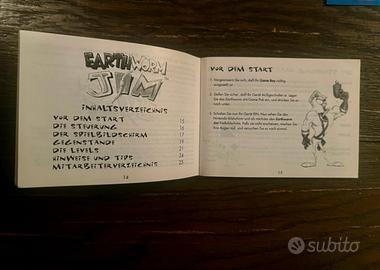 EARTHWORM
JIM
INHALTSVERZEICHNIS
VOR DEM START 15
DIE STEUERUNG 16
DER SPIELBILDSCHIRM 17
GEGENSTÄNDE 19
DIE LEVELS 21
HINWEISE UND TIPS 24
MITARBEITERVERZEICHNIS 25
14
VOR DEM START
1. Vergewissern Sie sich, daß Ihr Game Boy richtig
ausgestellt ist.
2. Stellen Sie sicher, daß Ihr Gerät AUSgeschaltet ist. Legen
Sie das Earthworm Jim Game Pak ein, und drücken Sie es
nach unten.
3. Schalten Sie nun Ihr Gerät EIN. Nun sehen Sie den
Nintendo-Bildschirm und als nächstes den Earthworm
Jim-Titelbildschirm. Falls sie nicht erscheinen, machen Sie
Ihre Augen auf, und versuchen Sie es noch einmal.
15
subito